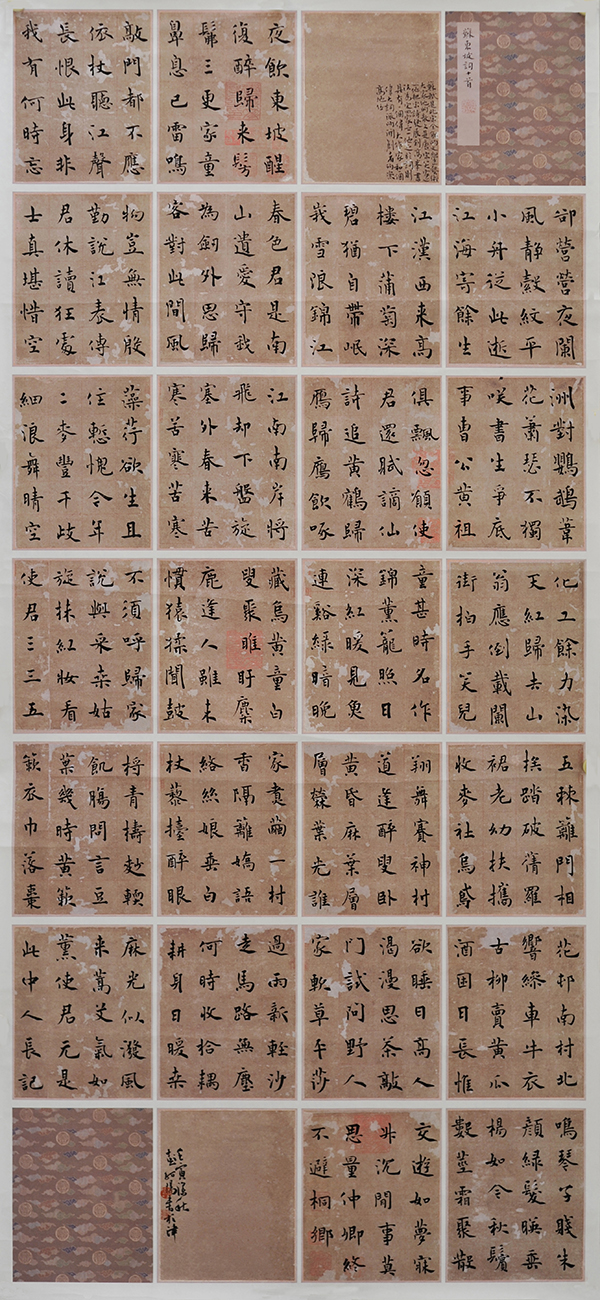 蘇東坡詞十首
夜飲東坡醒
復醉歸来髣
髴三更家童
鼻息已雷鳴
敲門都不應
依杖聽江聲
長恨此身非
我有何時忘
卻營營夜闌
風静縠紋平
小舟從此逝
江海寄餘生
江漢西来高
樓下蒲萄深
碧猶自帶岷
峩雪浪錦江
春色君是南
山遺愛守我
為劍外思歸
客對此間風
物豈無情殷
勤說江表傳
君休讀狂處
士真堪惜空
洲對鸚鵡葦
花蕭瑟不獨
咲書生爭底
事曹公黄祖
俱飄忽願使
君還賦謫仙
詩追黄鶴歸
鴈歸鷹飲啄
江南南岸將
飛却下盤旋
塞外春来苦
寒苦寒苦寒
藻荇欲生且
住暫愧今年
二麥豐千歧
細浪舞晴空
化工餘力染
天紅歸去山
翁應倒載闌
街拍手笑兒
童甚時名作
錦薰籠照日
深紅暖見魚
連谿緑暗晚
藏烏黄童白
叟聚睢盱麋
鹿逢人雖未
慣猿猱聞鼓
不須呼歸家
說與采桑姑
旋抹紅妝看
使君三三五
五棘籬門相
挨踏破蒨羅
裙老幼扶攜
收麥社烏鳶
翔舞賽神村
道逢醉叟卧
黄昏麻葉層
層檾葉光誰
家煑繭一村
香隔籬嬌語
絡絲娘垂白
杖藜擡醉眼
捋青擣麨輭
飢腸問言豆
葉幾時黄簌
簌衣巾落棗
花邨南村北
響繰車牛衣
古柳賣黄瓜
酒困日長惟
欲睡日高人
渴漫思茶敲
門試問野人
家軟草平莎
過雨新輕沙
走馬路無塵
何時收拾耦
耕身日暖桑
麻光似潑風
来蒿艾氣如
薰使君元是
此中人長記
鳴琴子賤朱
顏緑髮暎垂
楊如今秋鬢
數莖霜聚散
交遊如夢寐
升沉閒事莫
思量仲卿終
不避桐鄉